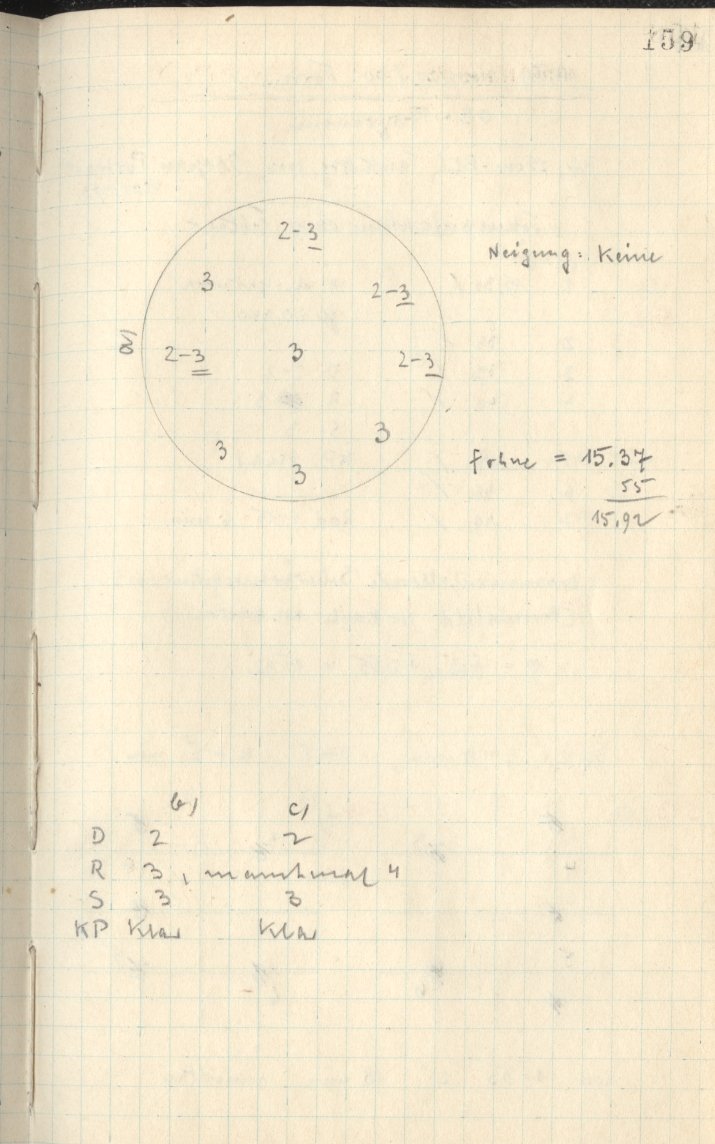 159
2-3
3
2-3
Neigung: Keine
a)
2-3
3
2-3
3
3
3
= 15.37
55
15.92
b) c)
D 2 2
R 3, manchmal 4
S 3 3
KP Klar Klar